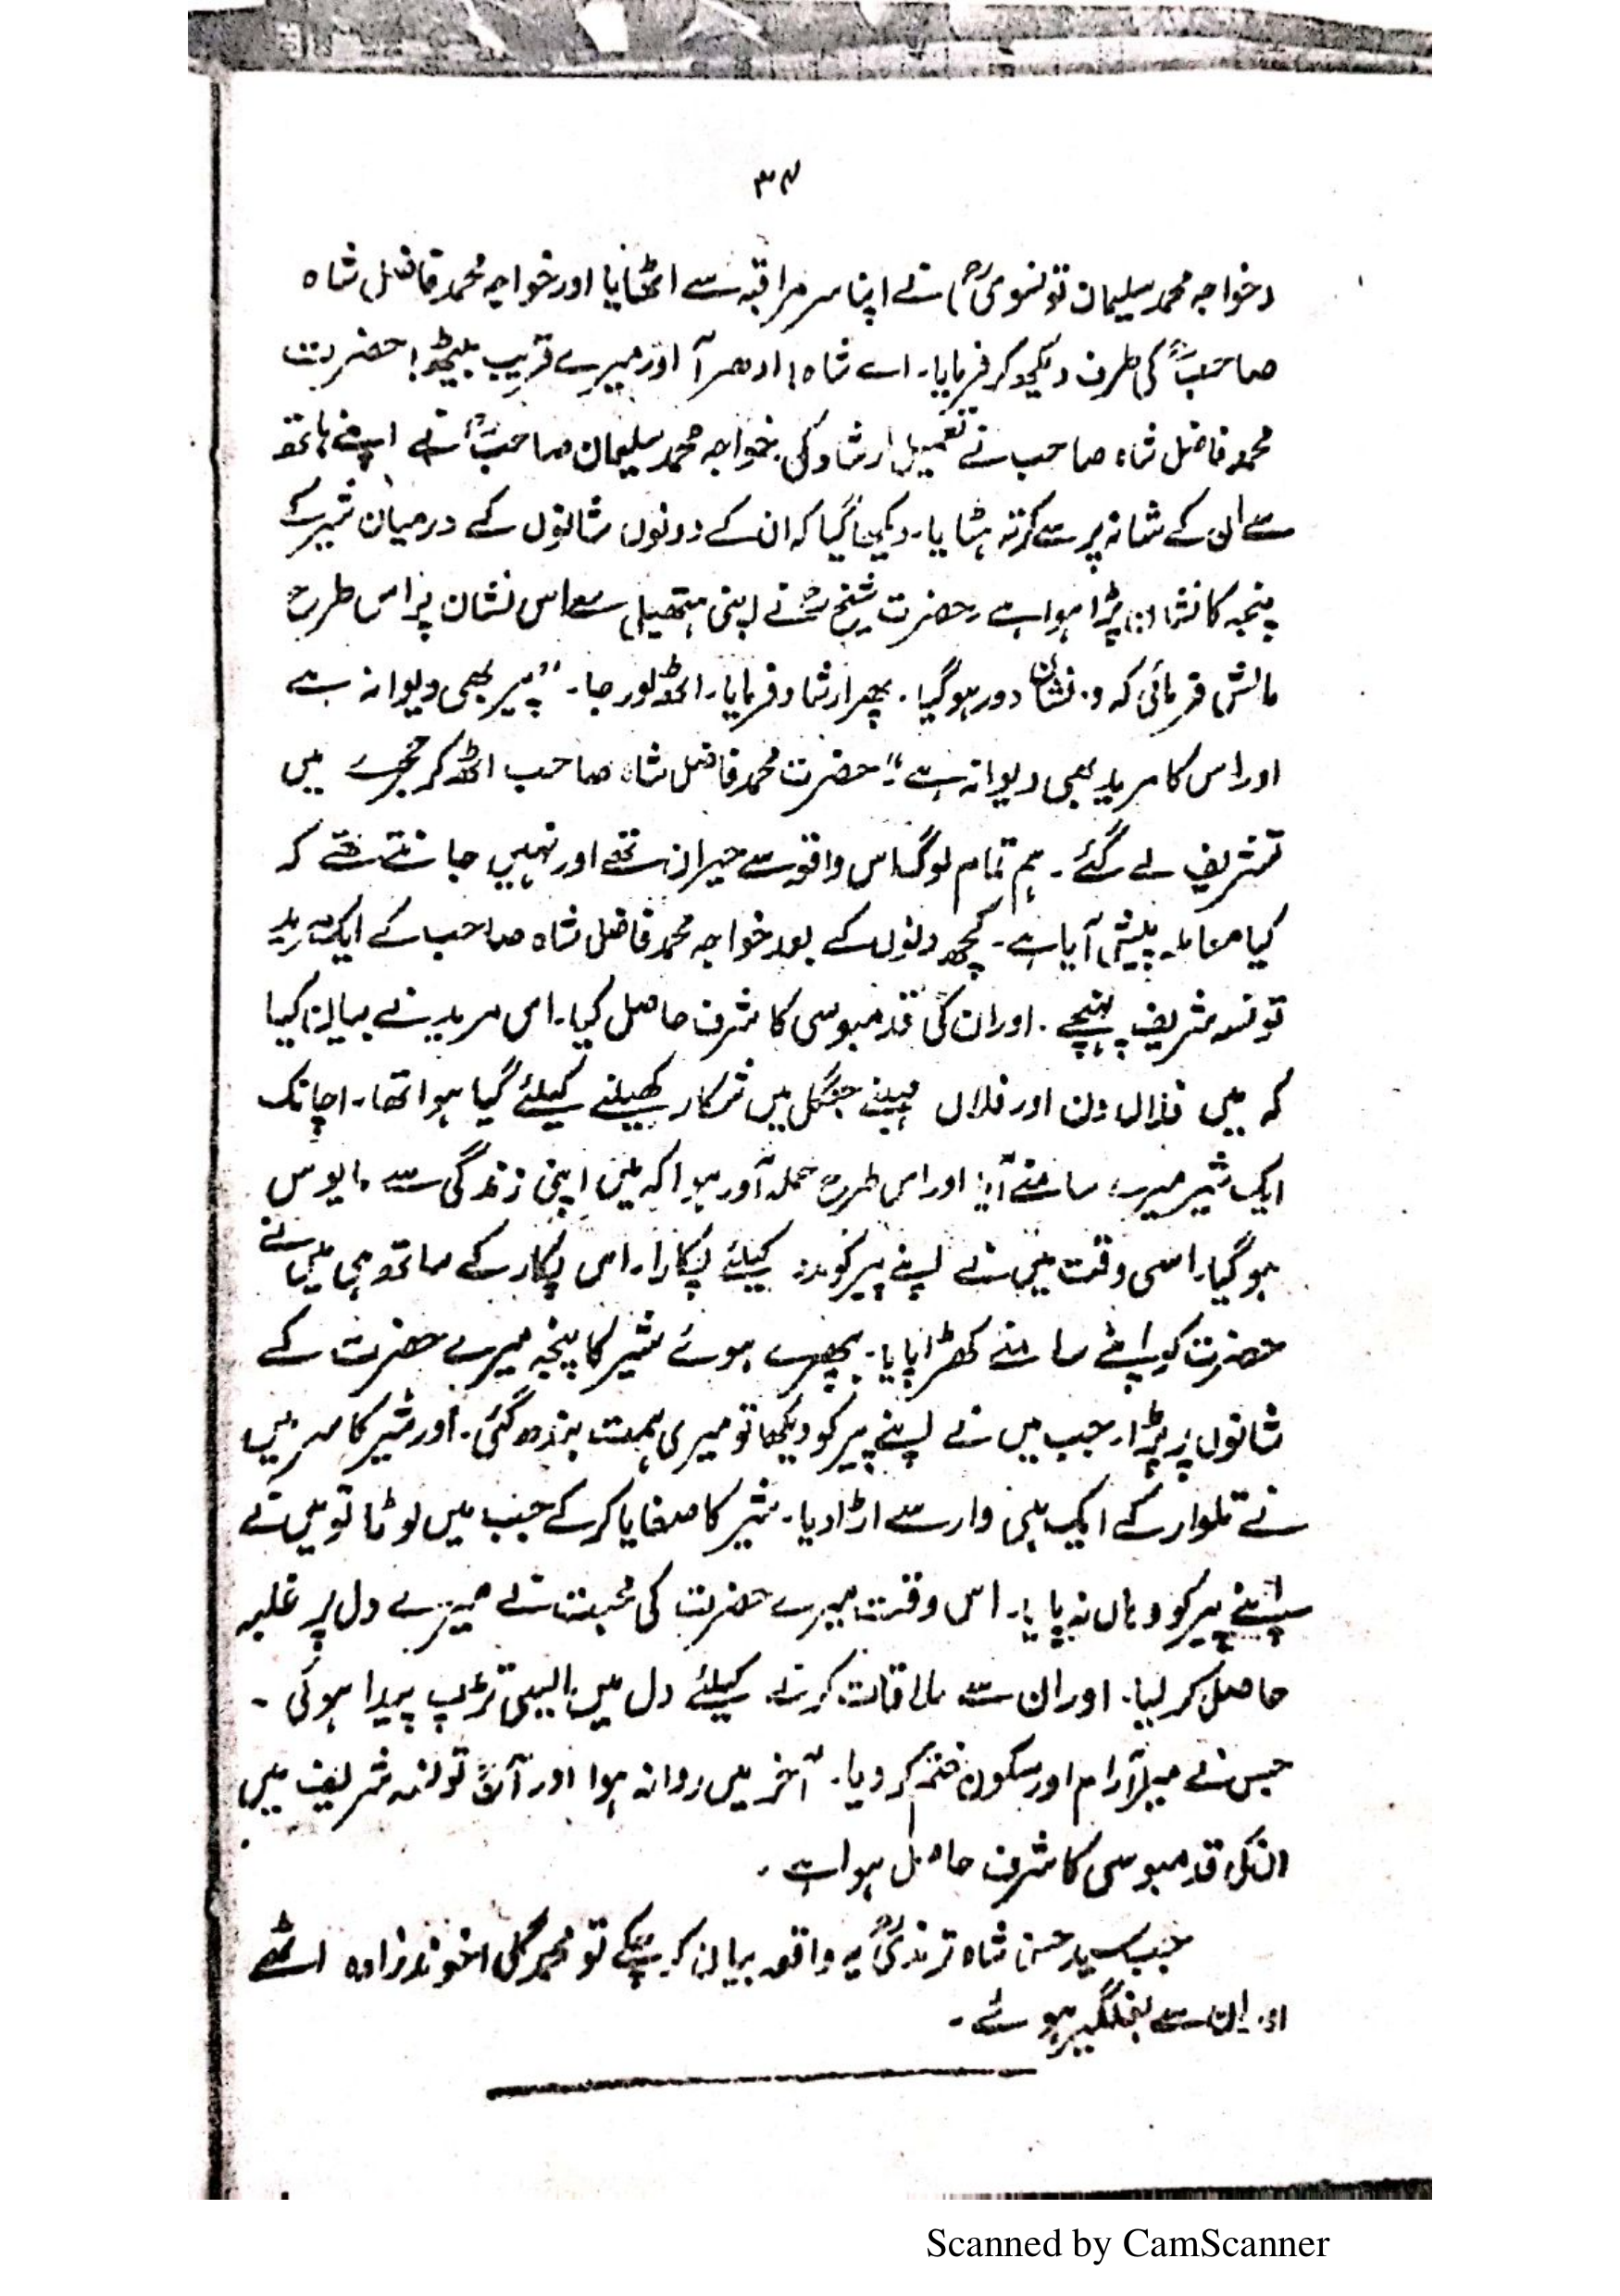 ۳۴
(خواجہ محمد سلیمان تونسویؒ) نے اپنا سر مراقبہ سے اٹھایا اور خواجہ محمد فاضل شاہ
صاحبؒ کی طرف دیکھ کر فرمایا۔ اے شاہ! ادھر آ اور میرے قریب بیٹھ! حضرت
محمد فاضل شاہ صاحب نے تعمیل ارشاد کی۔ خواجہ محمد سلیمان صاحبؒ نے اپنے ہاتھ
سے ان کے شانہ پر سے کرتہ ہٹایا۔ دیکھا گیا کہ ان کے دونوں شانوں کے درمیان شیر کے
پنجہ کا نشان پڑا ہوا ہے۔ حضرت شیخؒ نے اپنی ہتھیلی سے اس نشان پر اس طرح
مالش فرمائی کہ وہ نشان دور ہو گیا۔ پھر ارشاد فرمایا۔ اٹھ اور جا۔ "پیر بھی دیوانہ ہے
اور اس کا مرید بھی دیوانہ ہے"۔ حضرت محمد فاضل شاہ صاحب اٹھ کر حجرے میں
تشریف لے گئے۔ ہم تمام لوگ اس واقعہ سے حیران تھے اور نہیں جانتے تھے کہ
کیا معاملہ پیش آیا ہے۔ کچھ دنوں کے بعد خواجہ محمد فاضل شاہ صاحب کے ایک مرید
تونسہ شریف پہنچے۔ اور ان کی قدمبوسی کا شرف حاصل کیا۔ اس مرید نے بیان کیا
کہ میں فلاں دن اور فلاں مہینے جنگل میں شکار کھیلنے کیلئے گیا ہوا تھا۔ اچانک
ایک شیر میرے سامنے آیا اور اس طرح حملہ آور ہوا کہ میں اپنی زندگی سے مایوس
ہو گیا۔ اسی وقت میں نے اپنے پیر کو مدد کیلئے پکارا۔ اس پکار کے ساتھ ہی میں نے
حضرت کو اپنے سامنے کھڑا پایا۔ بپھرے ہوئے شیر کا پنجہ میرے حضرت کے
شانوں پر پڑا۔ جب میں نے اپنے پیر کو دیکھا تو میری ہمت بندھ گئی۔ اور شیر کا سر میں
نے تلوار کے ایک ہی وار سے اڑا دیا۔ شیر کا صفایا کر کے جب میں لوٹا تو میں نے
اپنے پیر کو وہاں نہ پایا۔ اس وقت میرے حضرت کی محبت نے میرے دل پر غلبہ
حاصل کر لیا۔ اور ان سے ملاقات کرنے کیلئے دل میں ایسی تڑپ پیدا ہوئی۔
جس نے میرا آرام اور سکون ختم کر دیا۔ آخر میں روانہ ہوا اور آج تونسہ شریف میں
ان کی قدمبوسی کا شرف حاصل ہوا ہے۔
جب سید حسن شاہ ترمذیؒ یہ واقعہ بیان کر چکے تو محمد گل اخوندزادہ اٹھے
اور ان سے بغلگیر ہوئے۔
Scanned by CamScanner